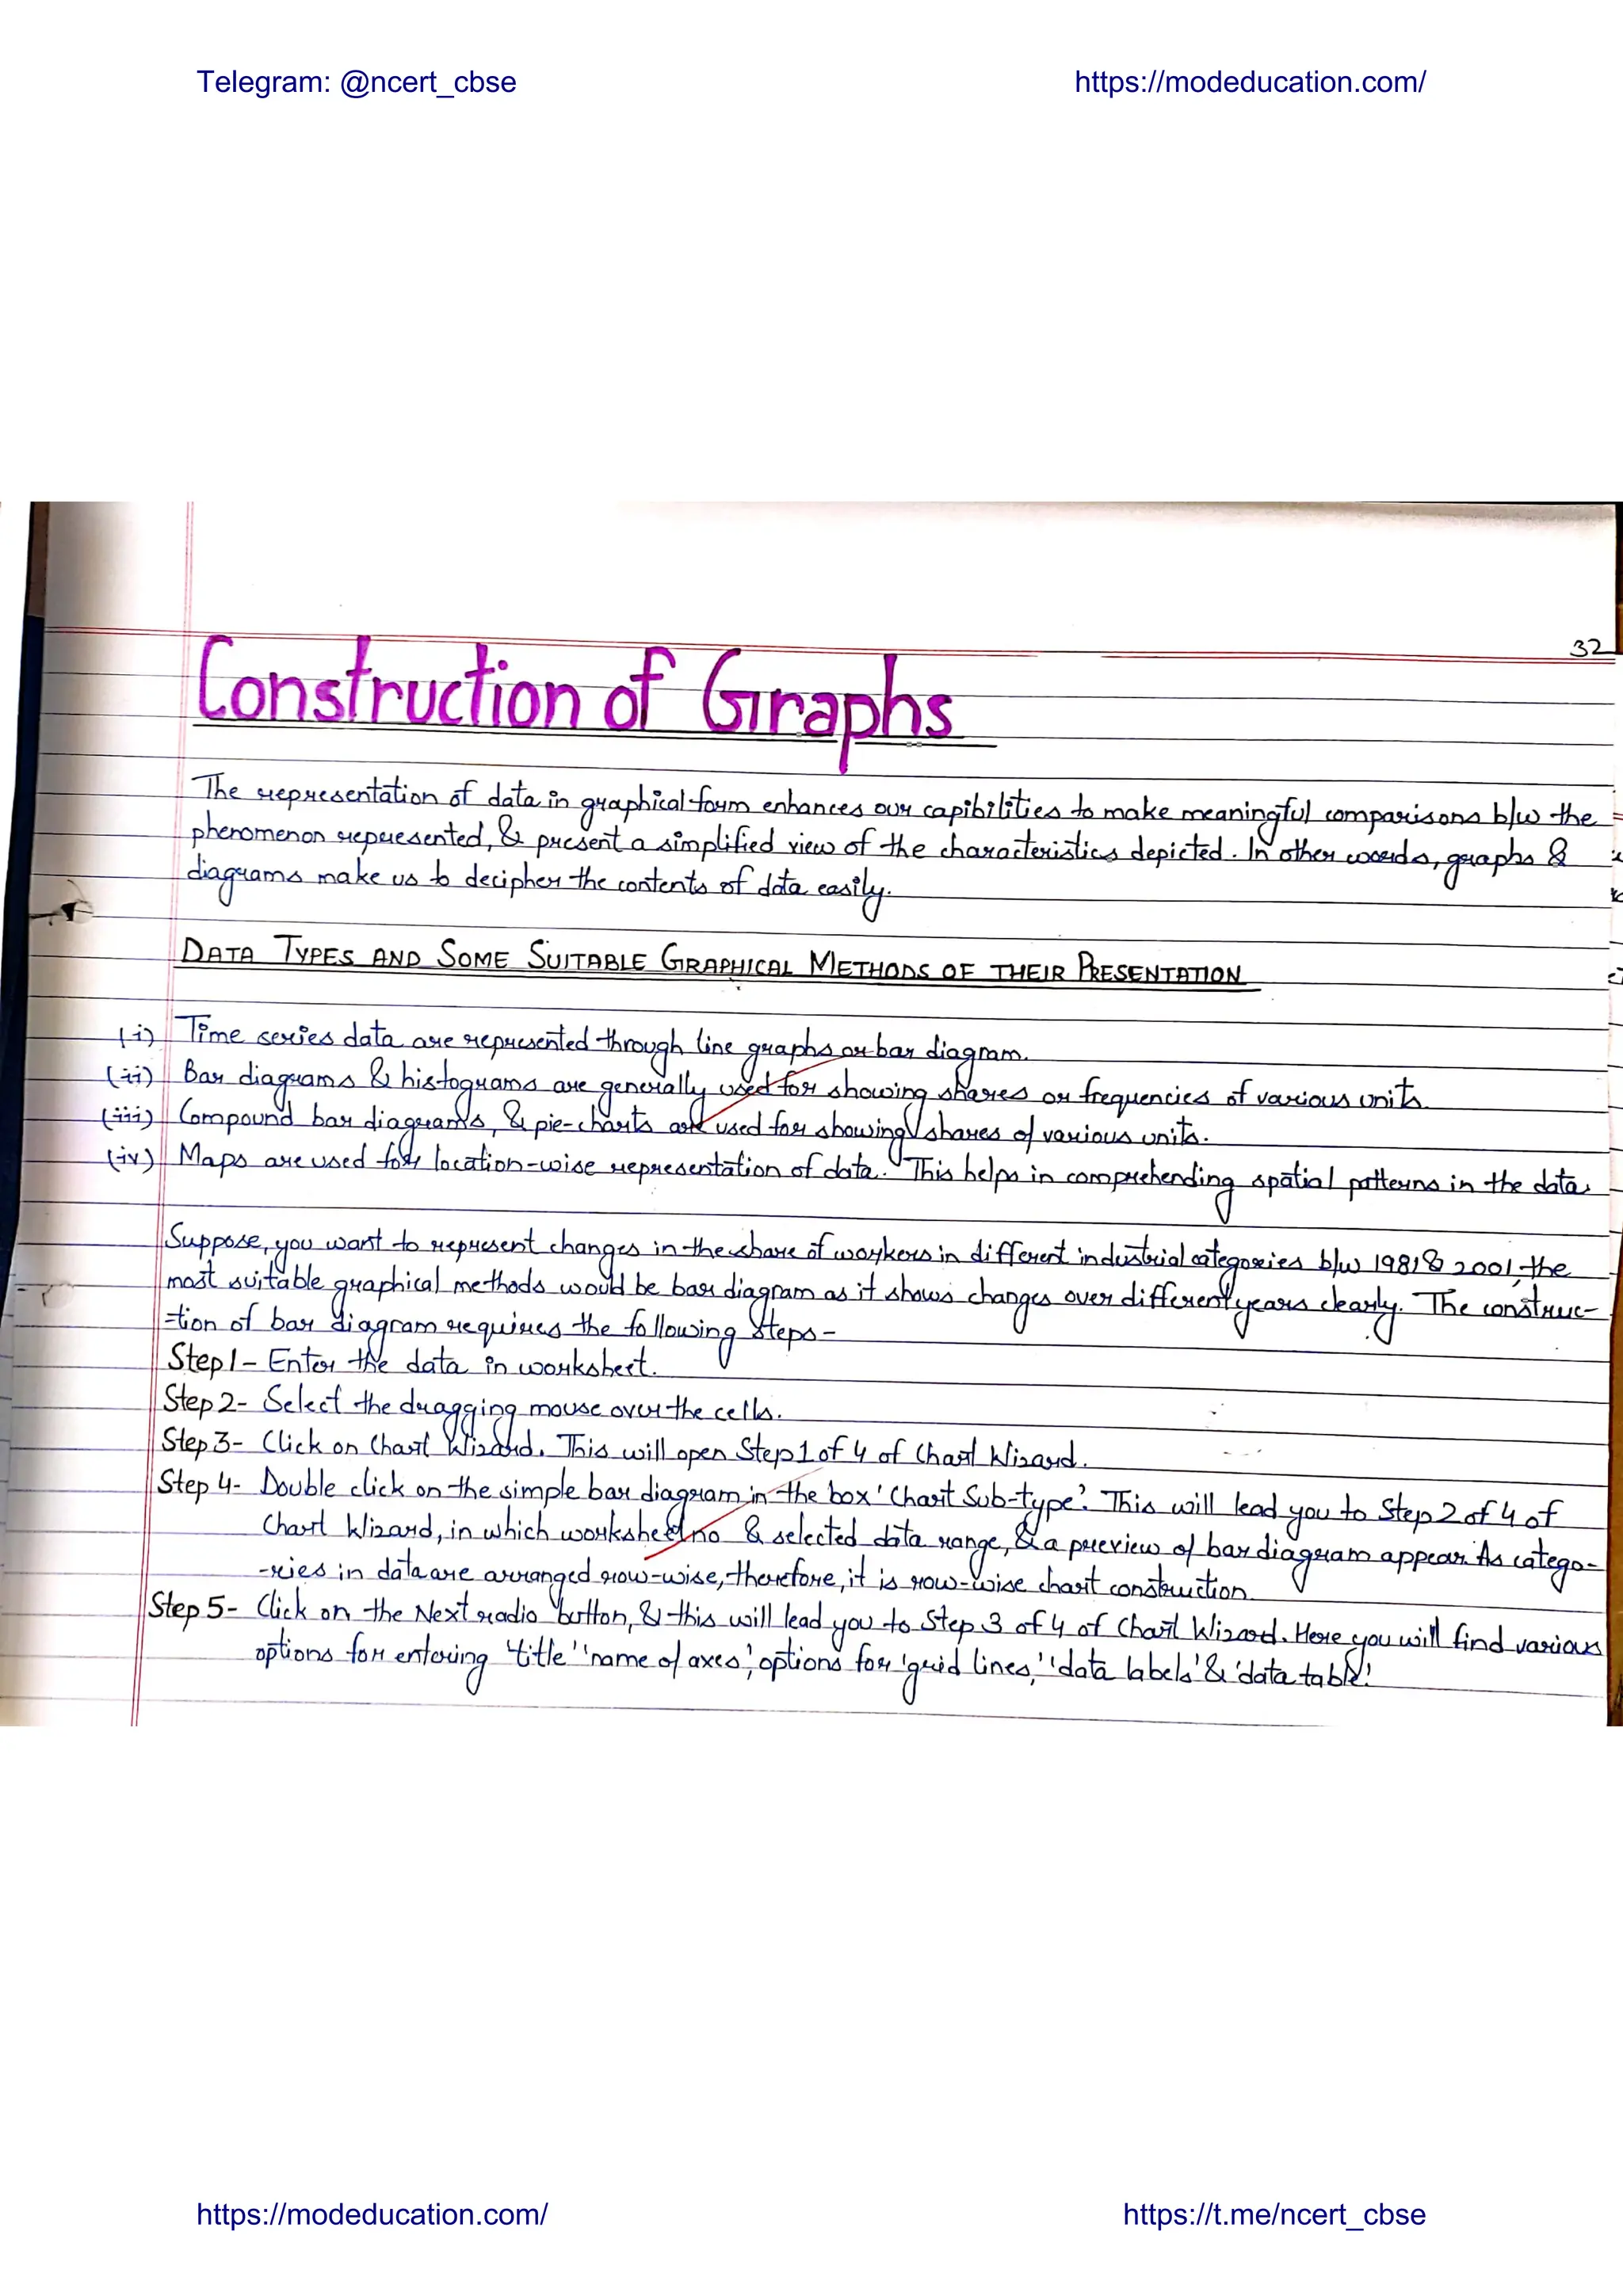 Telegram: @ncert_cbse
https://modeducation.com/
32
Construction of Graphs
The representation of data in graphical form enhances our capibilities to make meaningful comparisons b/w the
phenomenon represented, & present a simplified view of the characteristics depicted. In other words, graphs &
diagrams make us to decipher the contents of data easily.
DATA TYPES AND SOME SUITABLE GRAPHICAL METHODS OF THEIR PRESENTATION
(i) Time series data are represented through line graphs or bar diagram.
(ii) Bar diagrams & histograms are generally used for showing shares or frequencies of various units.
(iii) Compound bar diagrams, & pie-charts are used for showing shares of various units.
(iv) Maps are used for location-wise representation of data. This helps in comprehending spatial patterns in the data.
Suppose, you want to represent changes in the share of workers in different industrial categories b/w 1981 & 2001, the
most suitable graphical methods would be bar diagram as it shows changes over different years clearly. The construc-
-tion of bar diagram requires the following steps-
Step 1- Enter the data in worksheet.
Step 2- Select the dragging mouse over the cells.
Step 3- Click on Chart Wizard. This will open Step 1 of 4 of Chart Wizard.
Step 4- Double click on the simple bar diagram in the box 'Chart Sub-type'. This will lead you to Step 2 of 4 of
Chart Wizard, in which worksheet no & selected data range, & a preview of bar diagram appear. As catego-
-ries in data are arranged row-wise, therefore, it is row-wise chart construction.
Step 5- Click on the Next radio button, & this will lead you to Step 3 of 4 of Chart Wizard. Here you will find various
options for entering 'title' 'name of axes', options for 'grid lines,' 'data labels' & 'data table'.
https://modeducation.com/
https://t.me/ncert_cbse